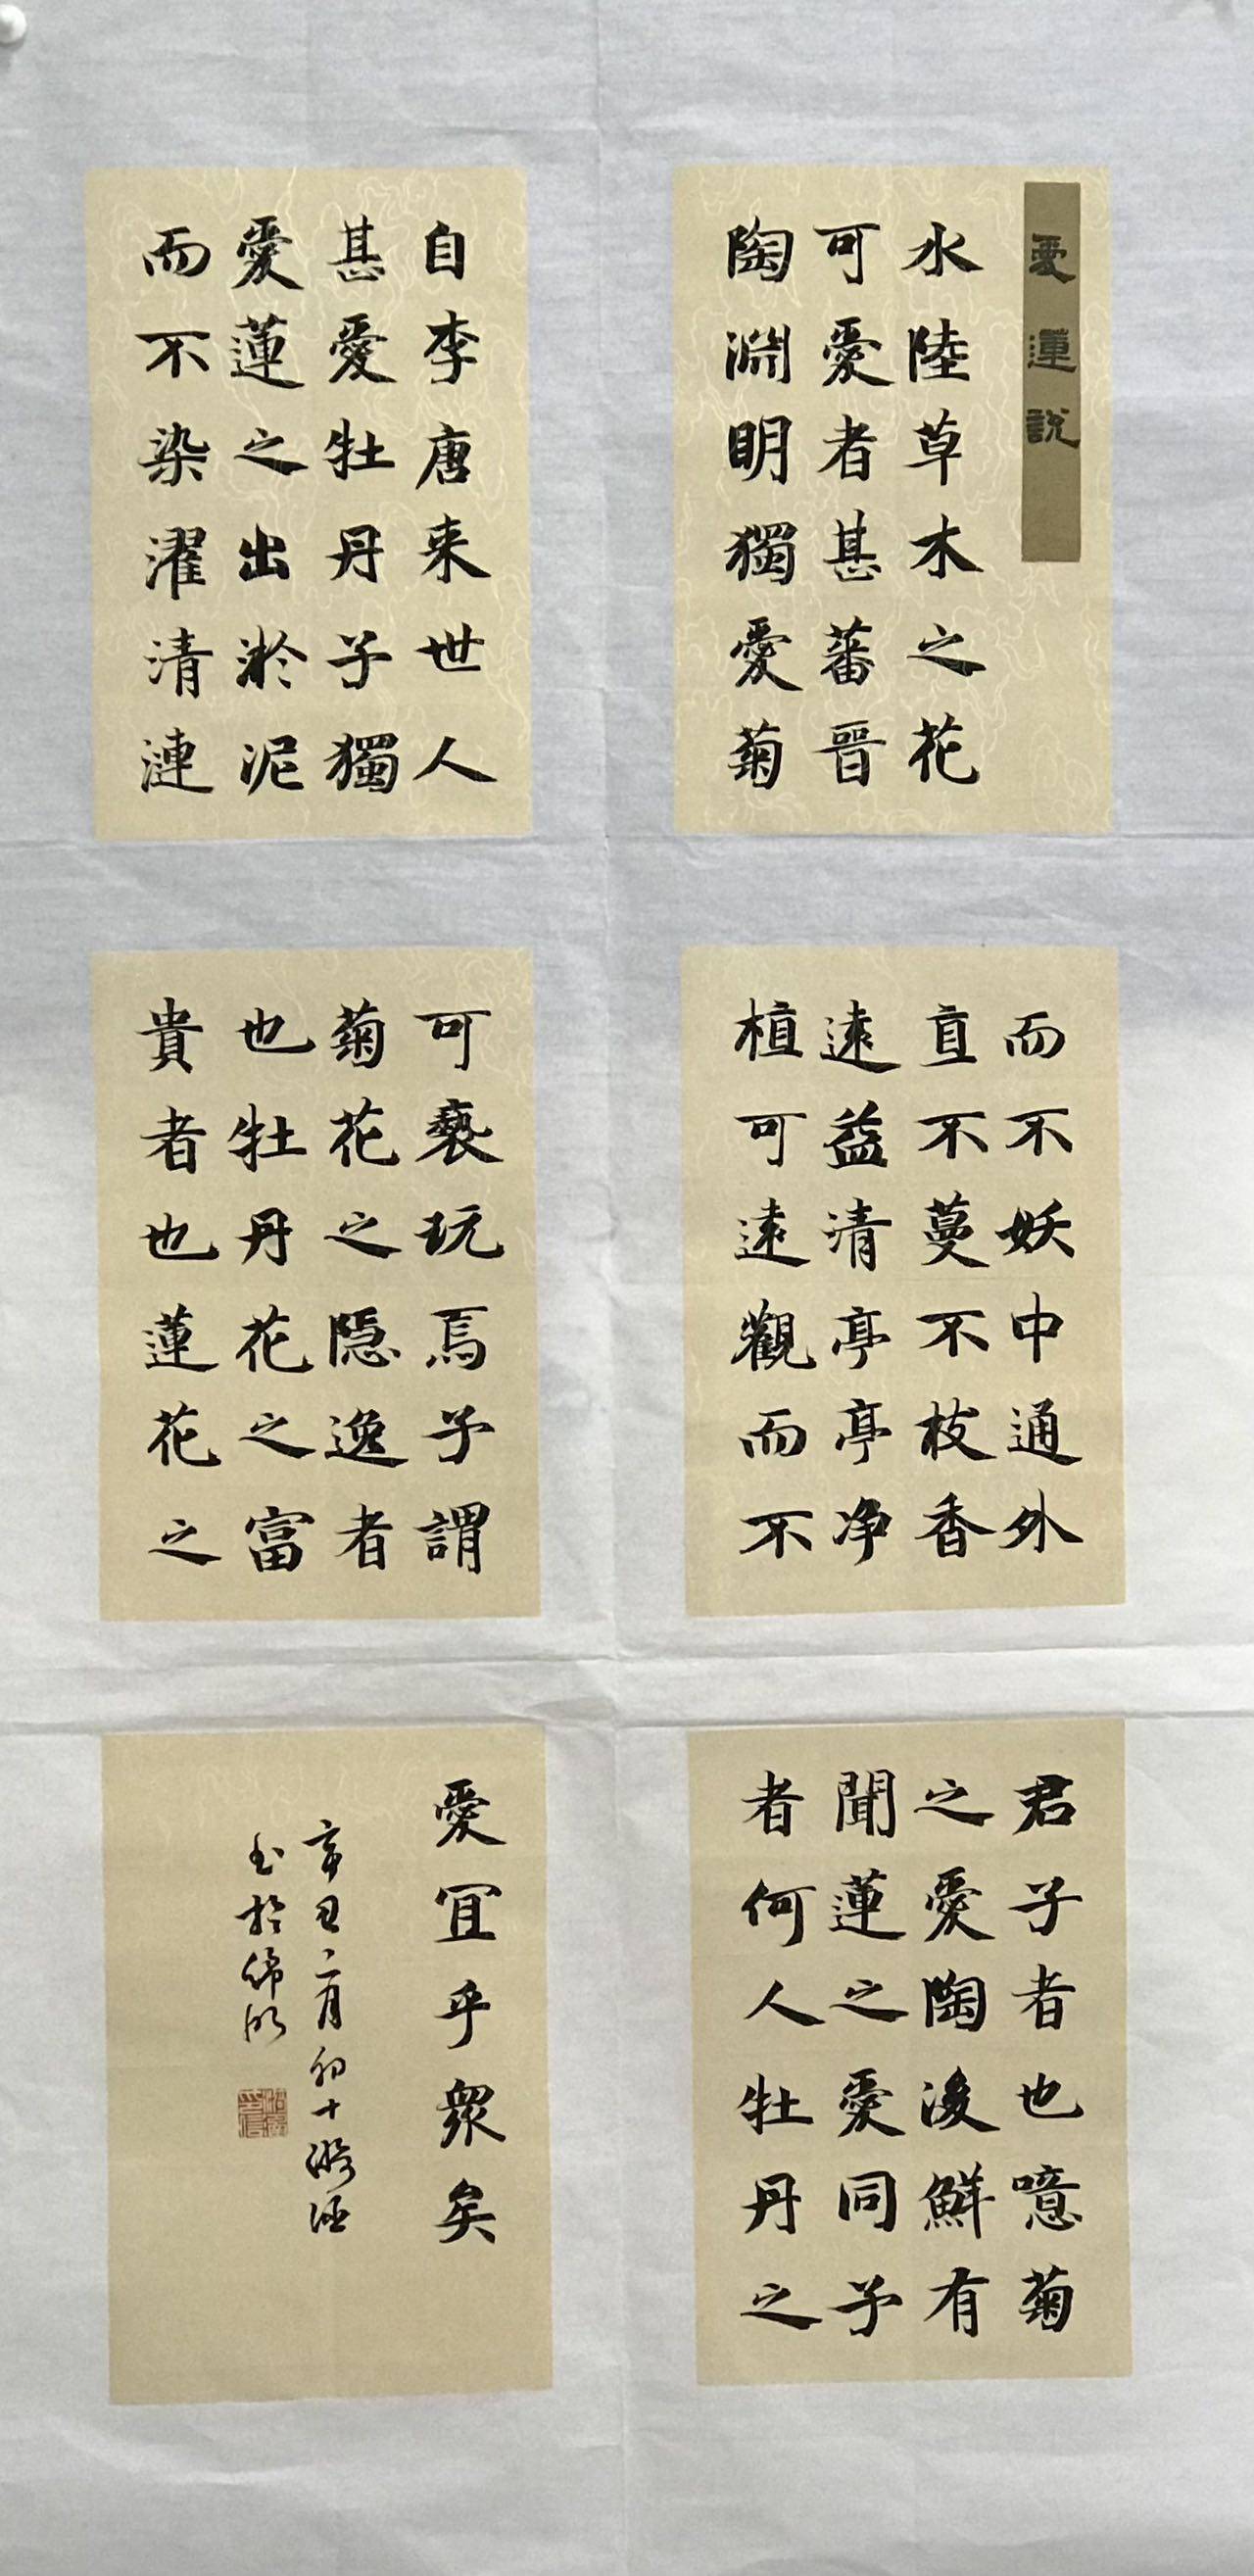 愛蓮說
水陸草木之花
可愛者甚蕃晉
陶淵明獨愛菊
自李唐来世人
甚愛牡丹予獨
愛蓮之出淤泥
而不染濯清漣
而不妖中通外
直不蔓不枝香
遠益清亭亭净
植可遠觀而不
可褻玩焉予謂
菊花之隐逸者
也牡丹花之富
貴者也蓮花之
君子者也噫菊
之愛陶後鮮有
聞蓮之愛同予
者何人牡丹之
愛宜乎衆矣
辛丑二月初十
书於